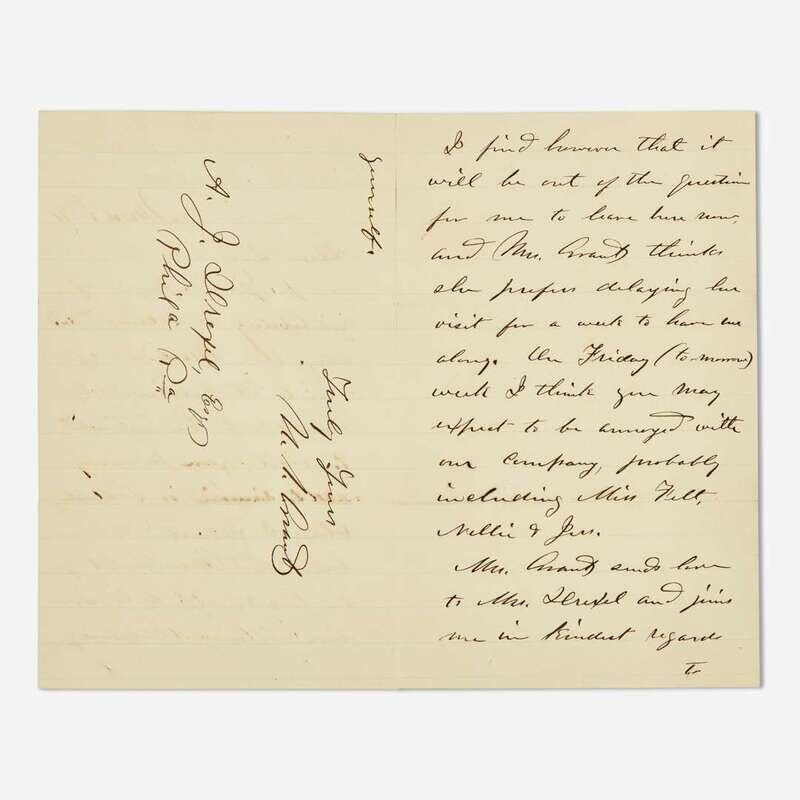 I find however that it
will be out of the question
for me to leave here now,
and Mrs. Grant thinks
she prefers delaying her
visit for a week to have me
along. On Friday (to-morrow)
week I think you may
expect to be annoyed with
our company, probably
including Miss Felt,
Nellie & Jess.
Mrs. Grant sends love
to Mrs. Drexel and joins
me in kindest regards
to
yourself.
Truly Yours
U. S. Grant
A. J. Drexel, Esq
Phila Pa